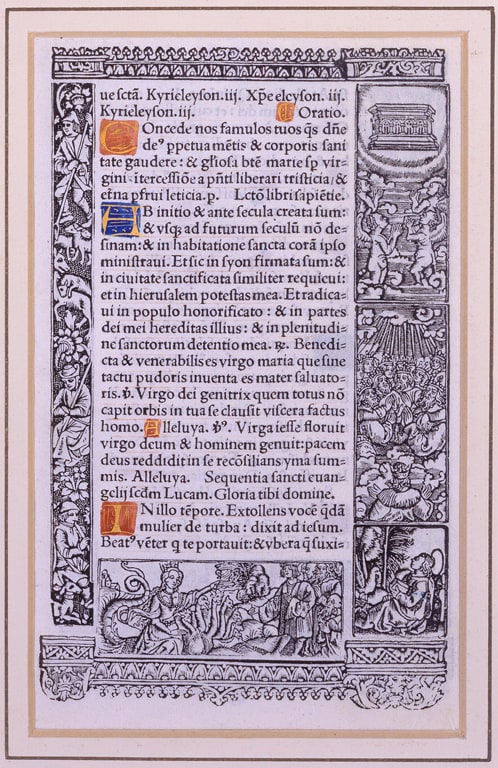 ue sctã. Kyrieleyson.iij. Xp̄e eleyson. iij.
Kyrieleyson.iij. Oratio.
COncede nos famulos tuos q̄s dñe
deꝰ ꝑpetua mẽtis & corporis sani
tate gaudere: & gl̃iosa btẽ marie sp vir-
gini s itercessiõe a pñti liberari tristicia/&
etña ꝑfrui leticia. p. Lctõ libri sapiẽtie.
AB initio & ante secula creata sum:
& vsqꝫ ad futurum seculũ nõ de-
sinam: & in habitatione sancta corã ipso
ministraui. Et sic in syon firmata sum: &
in ciuitate sanctificata similiter requieui:
et in hierusalem potestas mea. Et radica-
ui in populo honorificato: & in partes
dei mei hereditas illius: & in plenitudi-
ne sanctorum detentio mea. ℟. Benedi-
cta & venerabilis es virgo maria que sine
tactu pudoris inuenta es mater saluato-
ris. ℣. Virgo dei genitrix quem totus nõ
capit orbis in tua se clausit viscera factus
homo. Alleluya. ℣ꝰ. Virga iesse floruit
virgo deum & hominem genuit: pacem
deus reddidit in se recõsilians yma sum-
mis. Alleluya. Sequentia sancti euan-
gelij scdm Lucam. Gloria tibi domine.
IN illo tẽpore. Extollens vocẽ q̃dã
mulier de turba: dixit ad iesum.
Beatꝰ vẽter q te portauit: & vbera q̃ suxis-